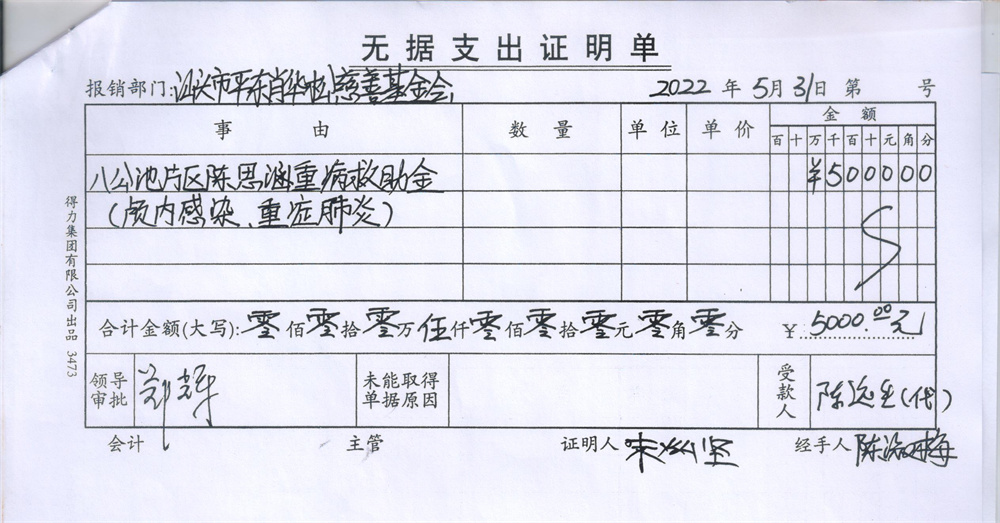 无据支出证明单
报销部门:汕头市平东肖华慈善基金会 2022 年 5 月 31 日 第 号
事 由 数 量 单 位 单 价 金 额
百 十 万 千 百 十 元 角 分
八公池片区陈思涵重病救助金 ¥500000
(颅内感染、重症肺炎)
合计金额(大写): 零 佰 零 拾 零 万 伍 仟 零 佰 零 拾 零 元 零 角 零 分 ¥ 5000.00元
领导审批 郑 未能取得单据原因 受款人 陈 (代)
会计 主管 证明人 坚 经手人 陈 梅
得力集团有限公司出品 3473